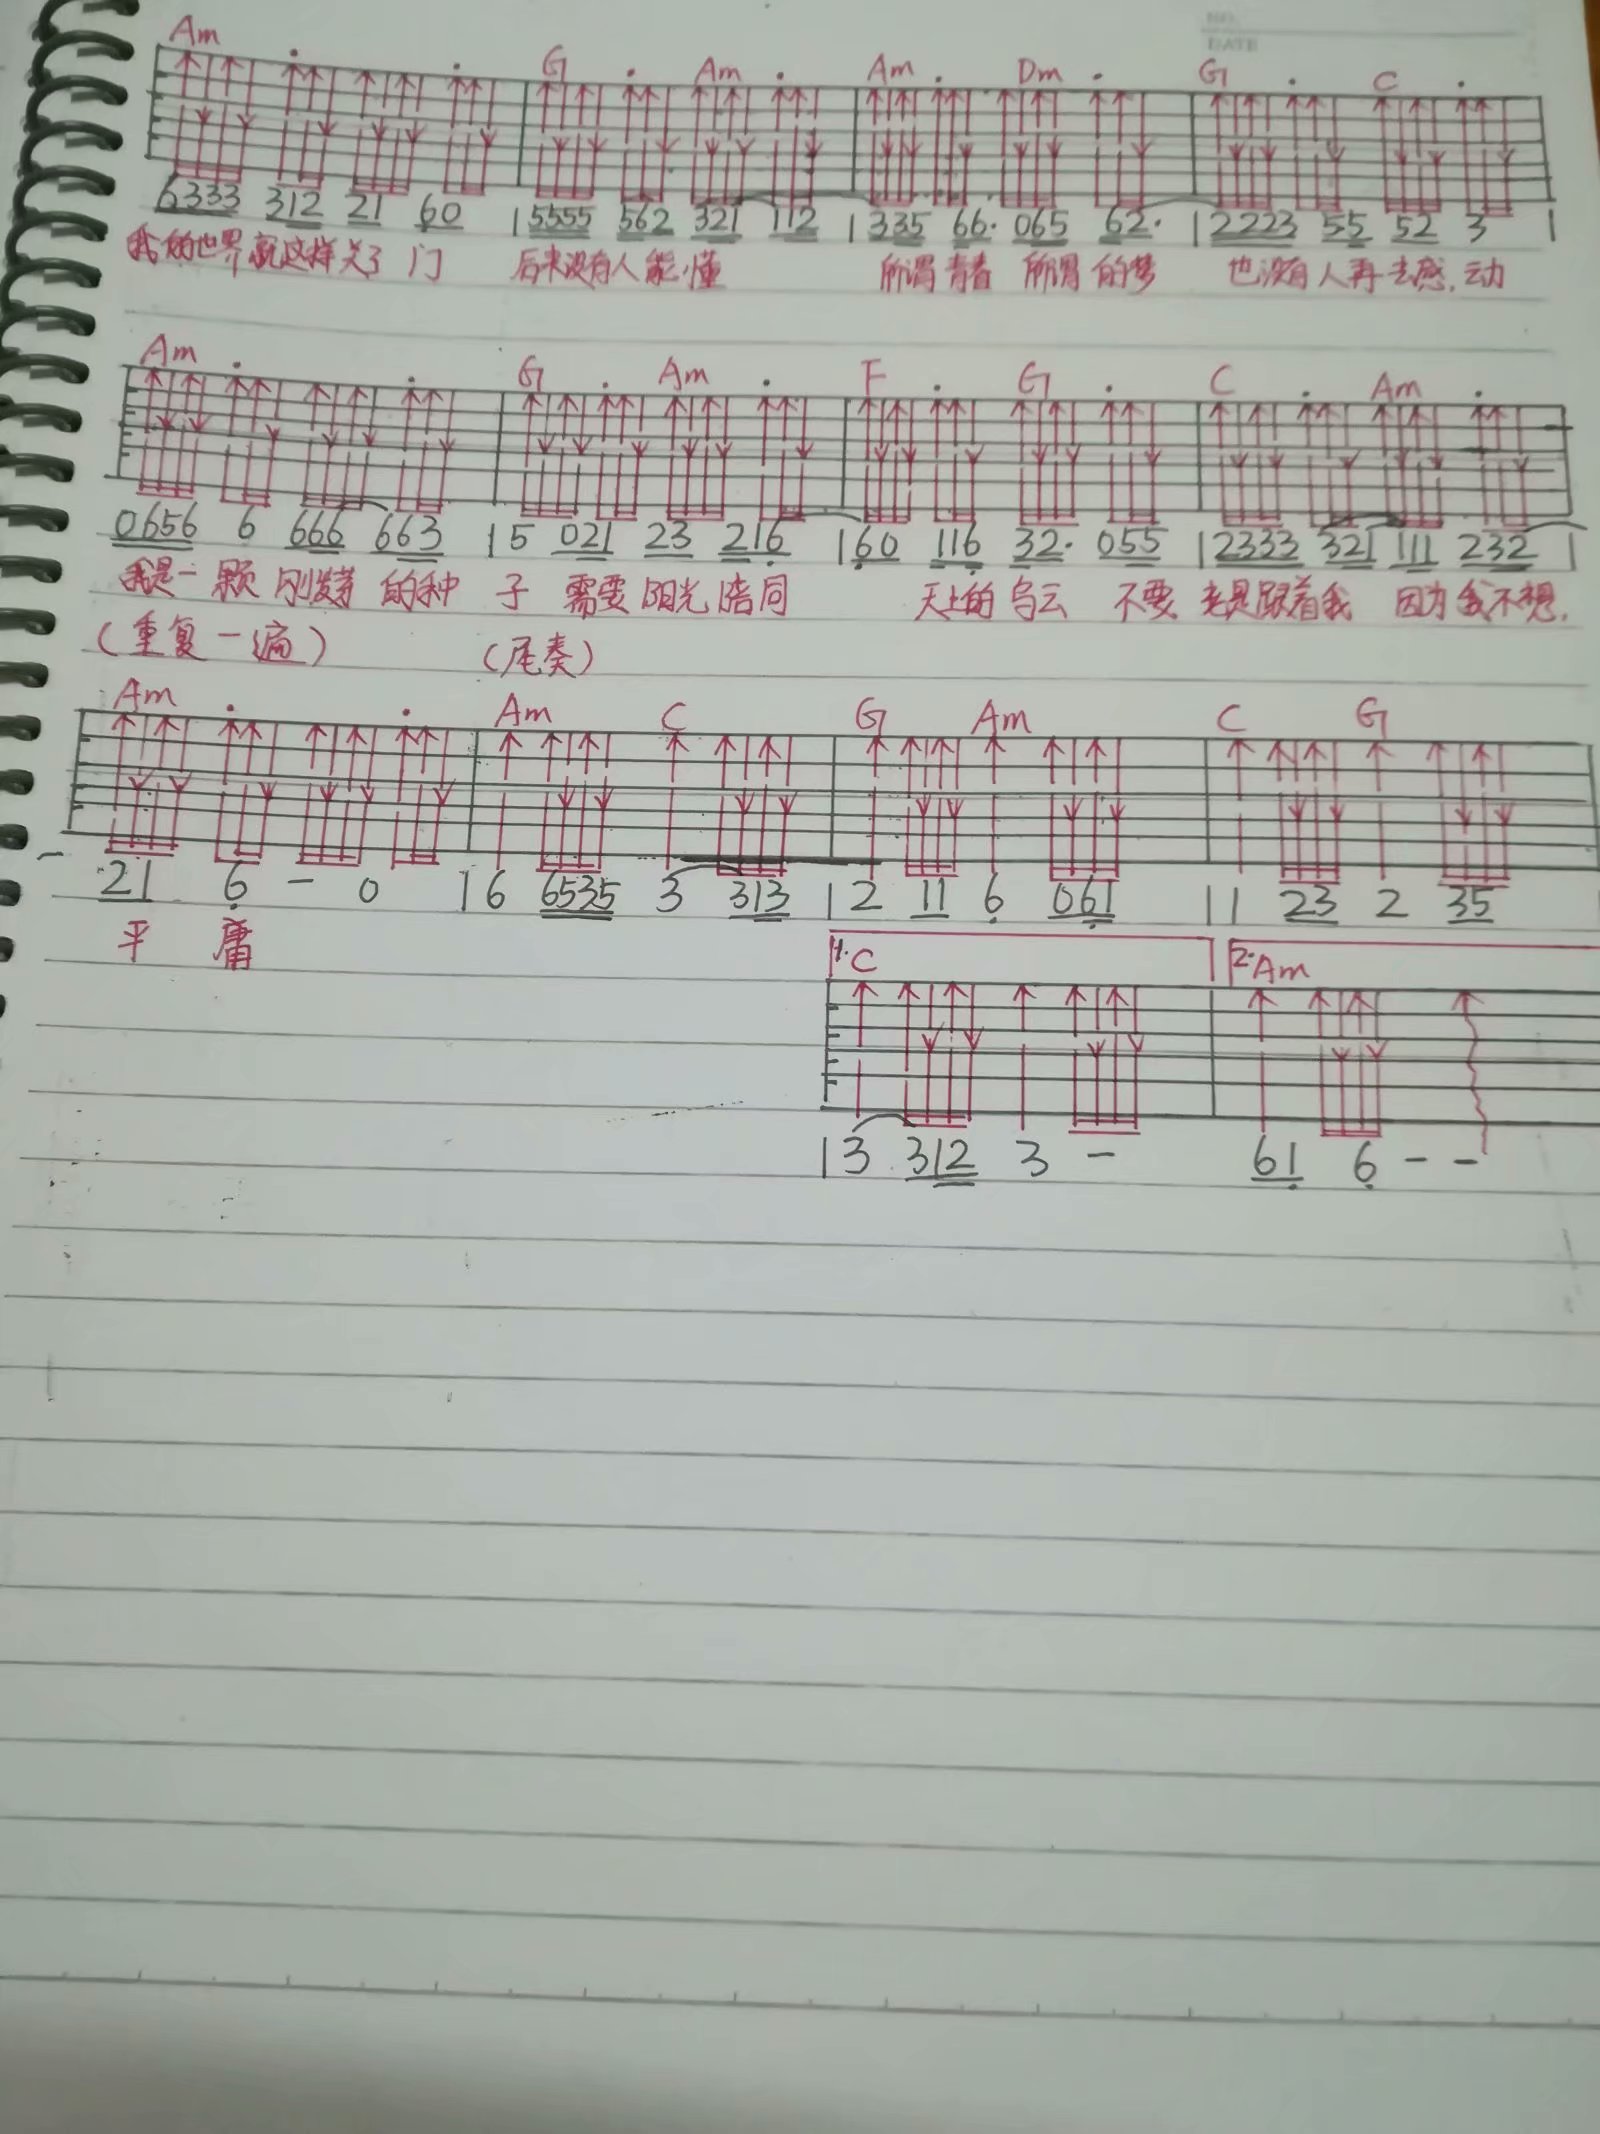 NO.
DATE
Am G Am Am Dm G C
6333 312 21 60 | 5555 562 321 112 | 335 66· 065 62· | 2223 55 52 3 |
我的世界就这样关了门 后来没有人能懂 所谓青春 所谓的梦 也没有人再去感动
Am G Am F G C Am
0656 6 666 663 | 5 021 23 216 | 60 116 32· 055 | 2333 321 111 232 |
我是一颗刚发芽的种子 需要阳光陪同 天上的乌云 不要老是跟着我 因为我不想
(重复一遍) (尾奏)
Am Am C G Am C G
21 6 - 0 | 6 6535 3 313 | 2 11 6 061 | 1 23 2 35
平庸
1. C 2. Am
| 3 312 3 - 61 6 - -